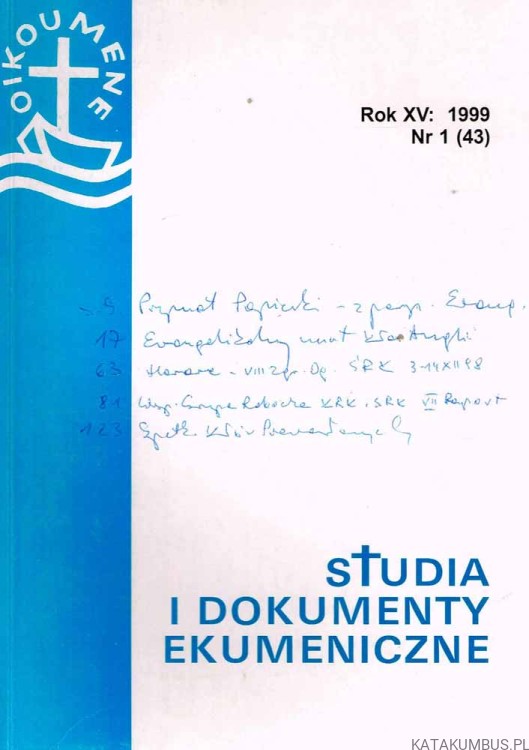 OIKOUMENE
Rok XV: 1999
Nr 1 (43)
s. 9 Prymat Papieski - z persp. Ewang.
17 Ewangelikalny nurt Kła Anglii
63 Harare - VIII Zgr. Og. ŚRK 3-14 XII 98
81 Wsp. Grupa Robocza KRK i ŚRK VII Raport
123
STUDIA
I DOKUMENTY
EKUMENICZNE
KATAKUMBUS.PL